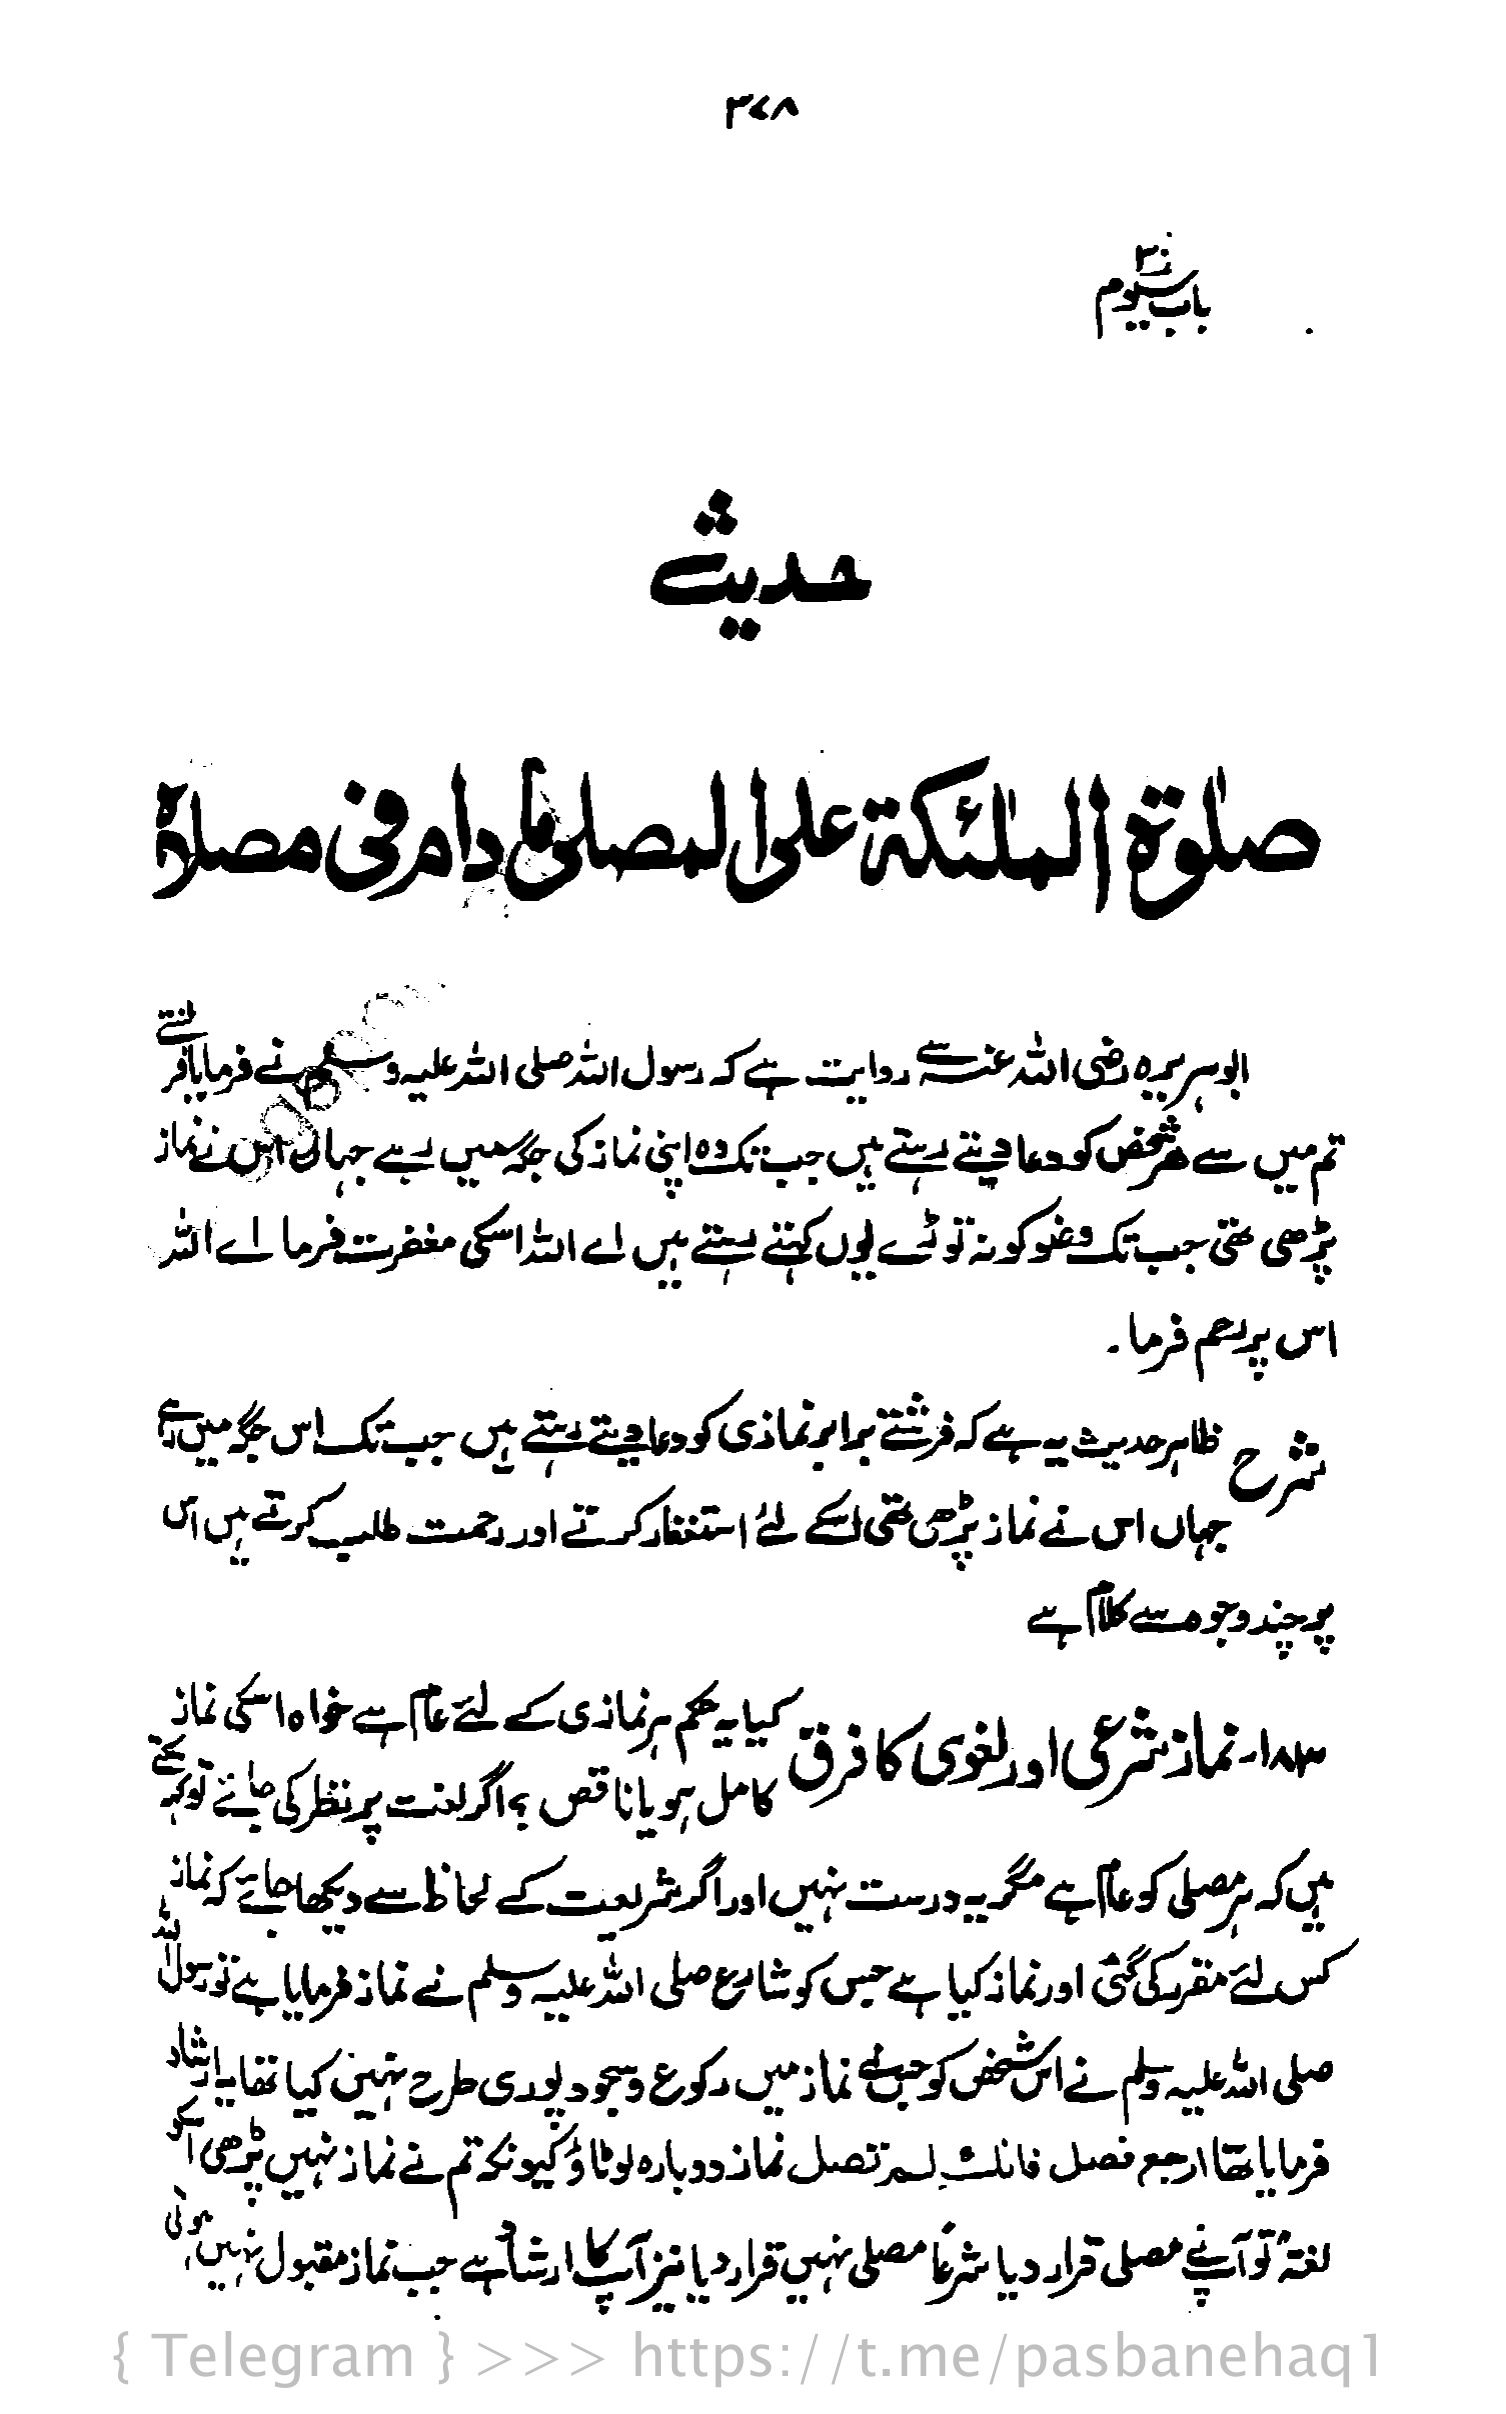 ۳۷۸
باب سیوم
حدیث
صلٰوة الملٰئکة علی المصلی ما دام فی مصلاہ
ابوہریرہ رضی اللہ عنہ سے روایت ہے کہ رسول اللہ صلی اللہ علیہ وسلم نے فرمایا فرشتے
تم میں سے ہر شخص کو دعا دیتے رہتے ہیں جب تک وہ اپنی نماز کی جگہ میں رہے جہاں اس نے نماز
پڑھی تھی جب تک وضو کو نہ توڑے یوں کہتے رہتے ہیں اے اللہ اسکی مغفرت فرما اے اللہ
اس پر رحم فرما ۔
شرح ظاہر حدیث یہ ہے کہ فرشتے برابر نمازی کو دعا دیتے رہتے ہیں جب تک اس جگہ میں رہے
جہاں اس نے نماز پڑھی تھی اسکے لئے استغفار کرتے اور رحمت طلب کرتے ہیں اس
پر چند وجوہ سے کلام ہے
۱۸۳- نماز شرعی اور لغوی کا فرق کیا یہ حکم ہر نمازی کے لئے عام ہے خواہ اسکی نماز
کامل ہو یا ناقص ؟ اگر لغت پر نظر کی جائے تو کہہ سکتے
ہیں کہ ہر مصلی کو عام ہے مگر یہ درست نہیں اور اگر شریعت کے لحاظ سے دیکھا جائے کہ نماز
کس لئے مقرر کی گئی اور نماز کیا ہے جس کو شارع صلی اللہ علیہ وسلم نے نماز فرمایا ہے تو رسول اللہ
صلی اللہ علیہ وسلم نے اس شخص کو جس نے نماز میں رکوع و سجود پوری طرح نہیں کیا تھا یہ ارشاد
فرمایا تھا ارجع فصل فانک لم تصل نماز دوبارہ لوٹاؤ کیونکہ تم نے نماز نہیں پڑھی اسکو
لغۃً تو آپ نے مصلی قرار دیا شرعاً مصلی نہیں قرار دیا نیز آپ کا ارشاد ہے جب نماز مقبول نہیں ہوئی
{ Telegram } >>> https://t.me/pasbanehaq1